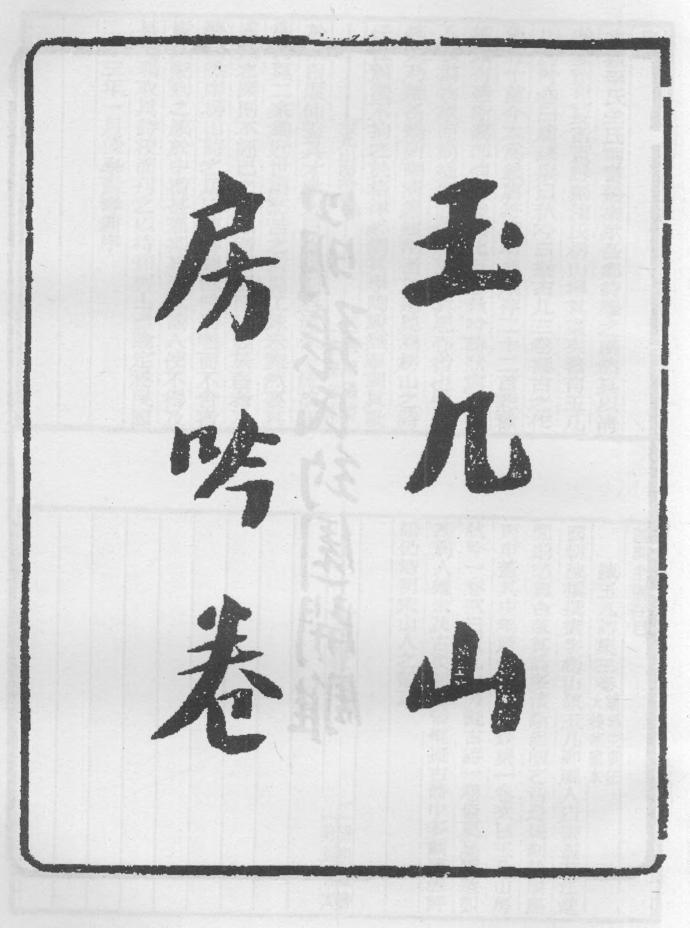 玉几山
房吟卷